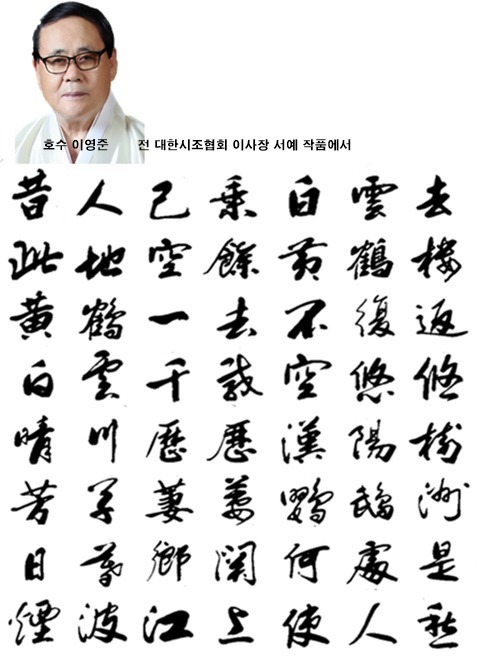 호수 이영준 전 대한시조협회 이사장 서예 작품에서
昔人已乘白雲去
此地空餘黃鶴樓
黃鶴一去不復返
白雲千載空悠悠
晴川歷歷漢陽樹
芳草萋萋鸚鵡洲
日暮鄉關何處是
煙波江上使人愁